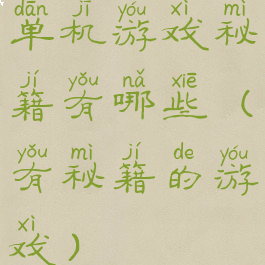 dān jī yóu xì mì
单机游戏秘
jí yǒu nǎ xiē
籍有哪些（
yǒu mì jí de yóu
有秘籍的游
xì
戏）